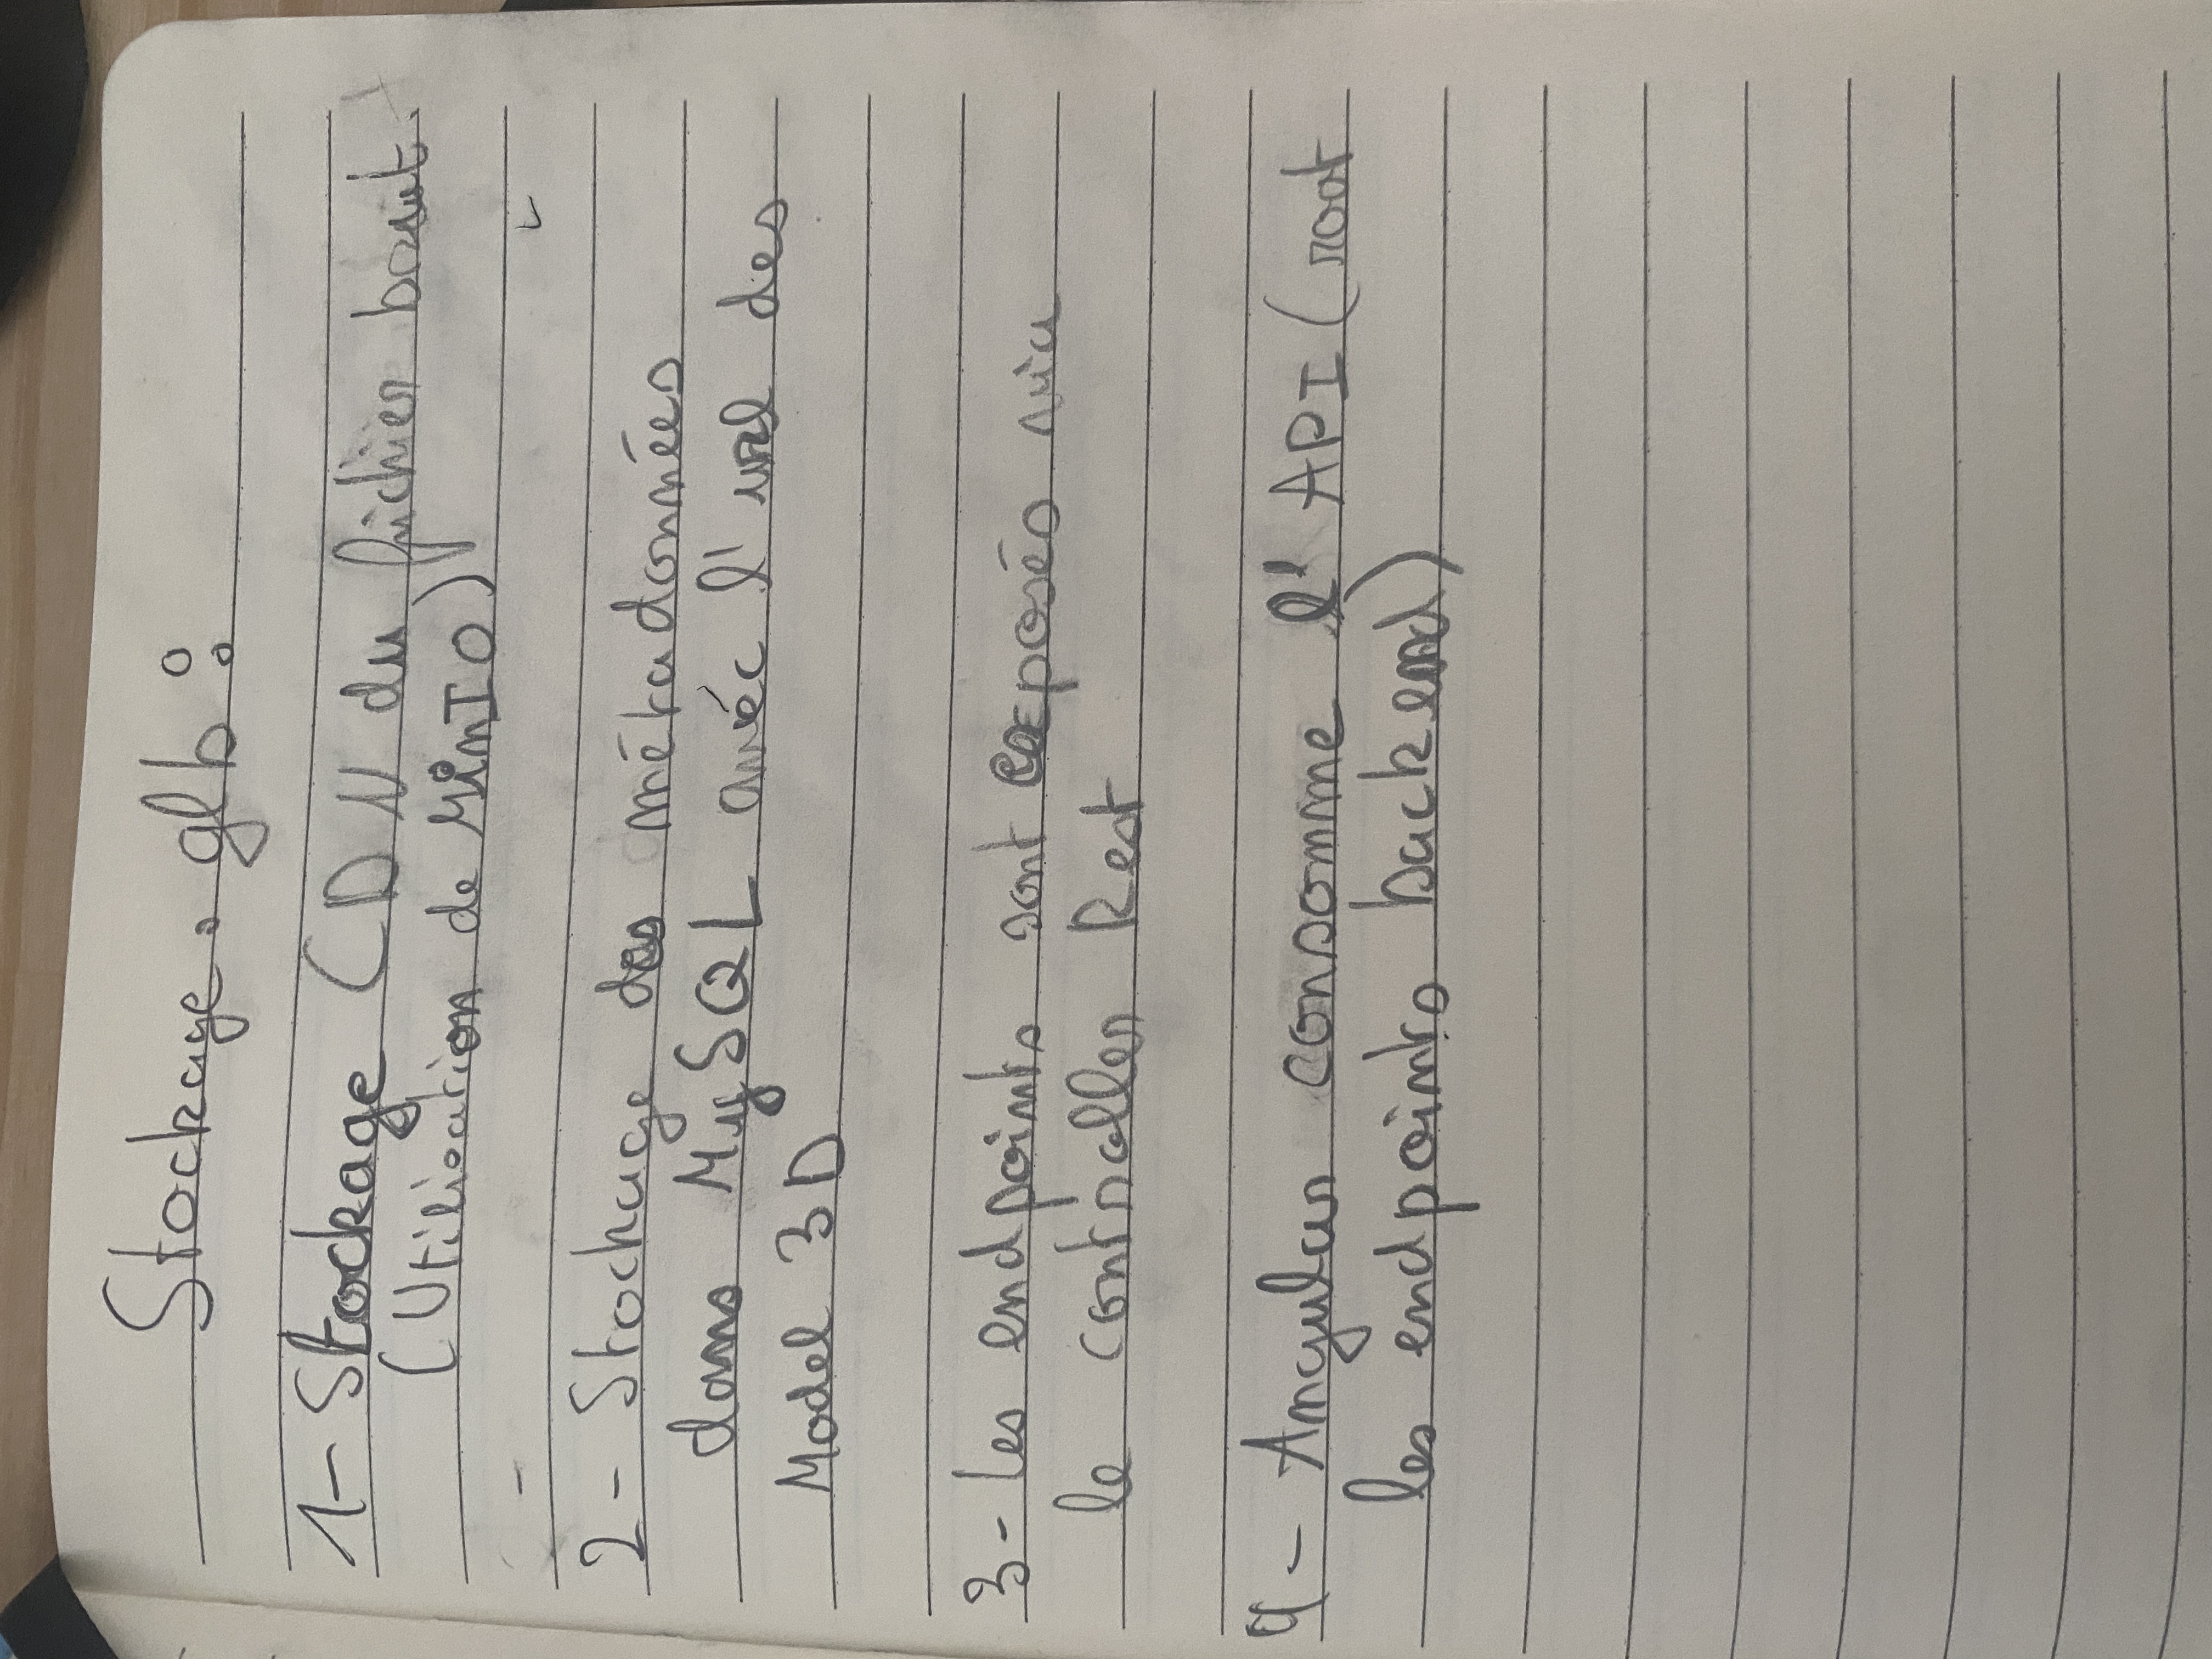 Stockage .glb :
1- Stockage CDN du fichier brut.
(Utilisation de MinIO)
2- Stockage des métadonnées
dans MySQL avéc l'url des
Model 3D
3- Les endpoints sont exposés via
le controller Rest
4- Angular consomme l'API (root
les endpoints backend)